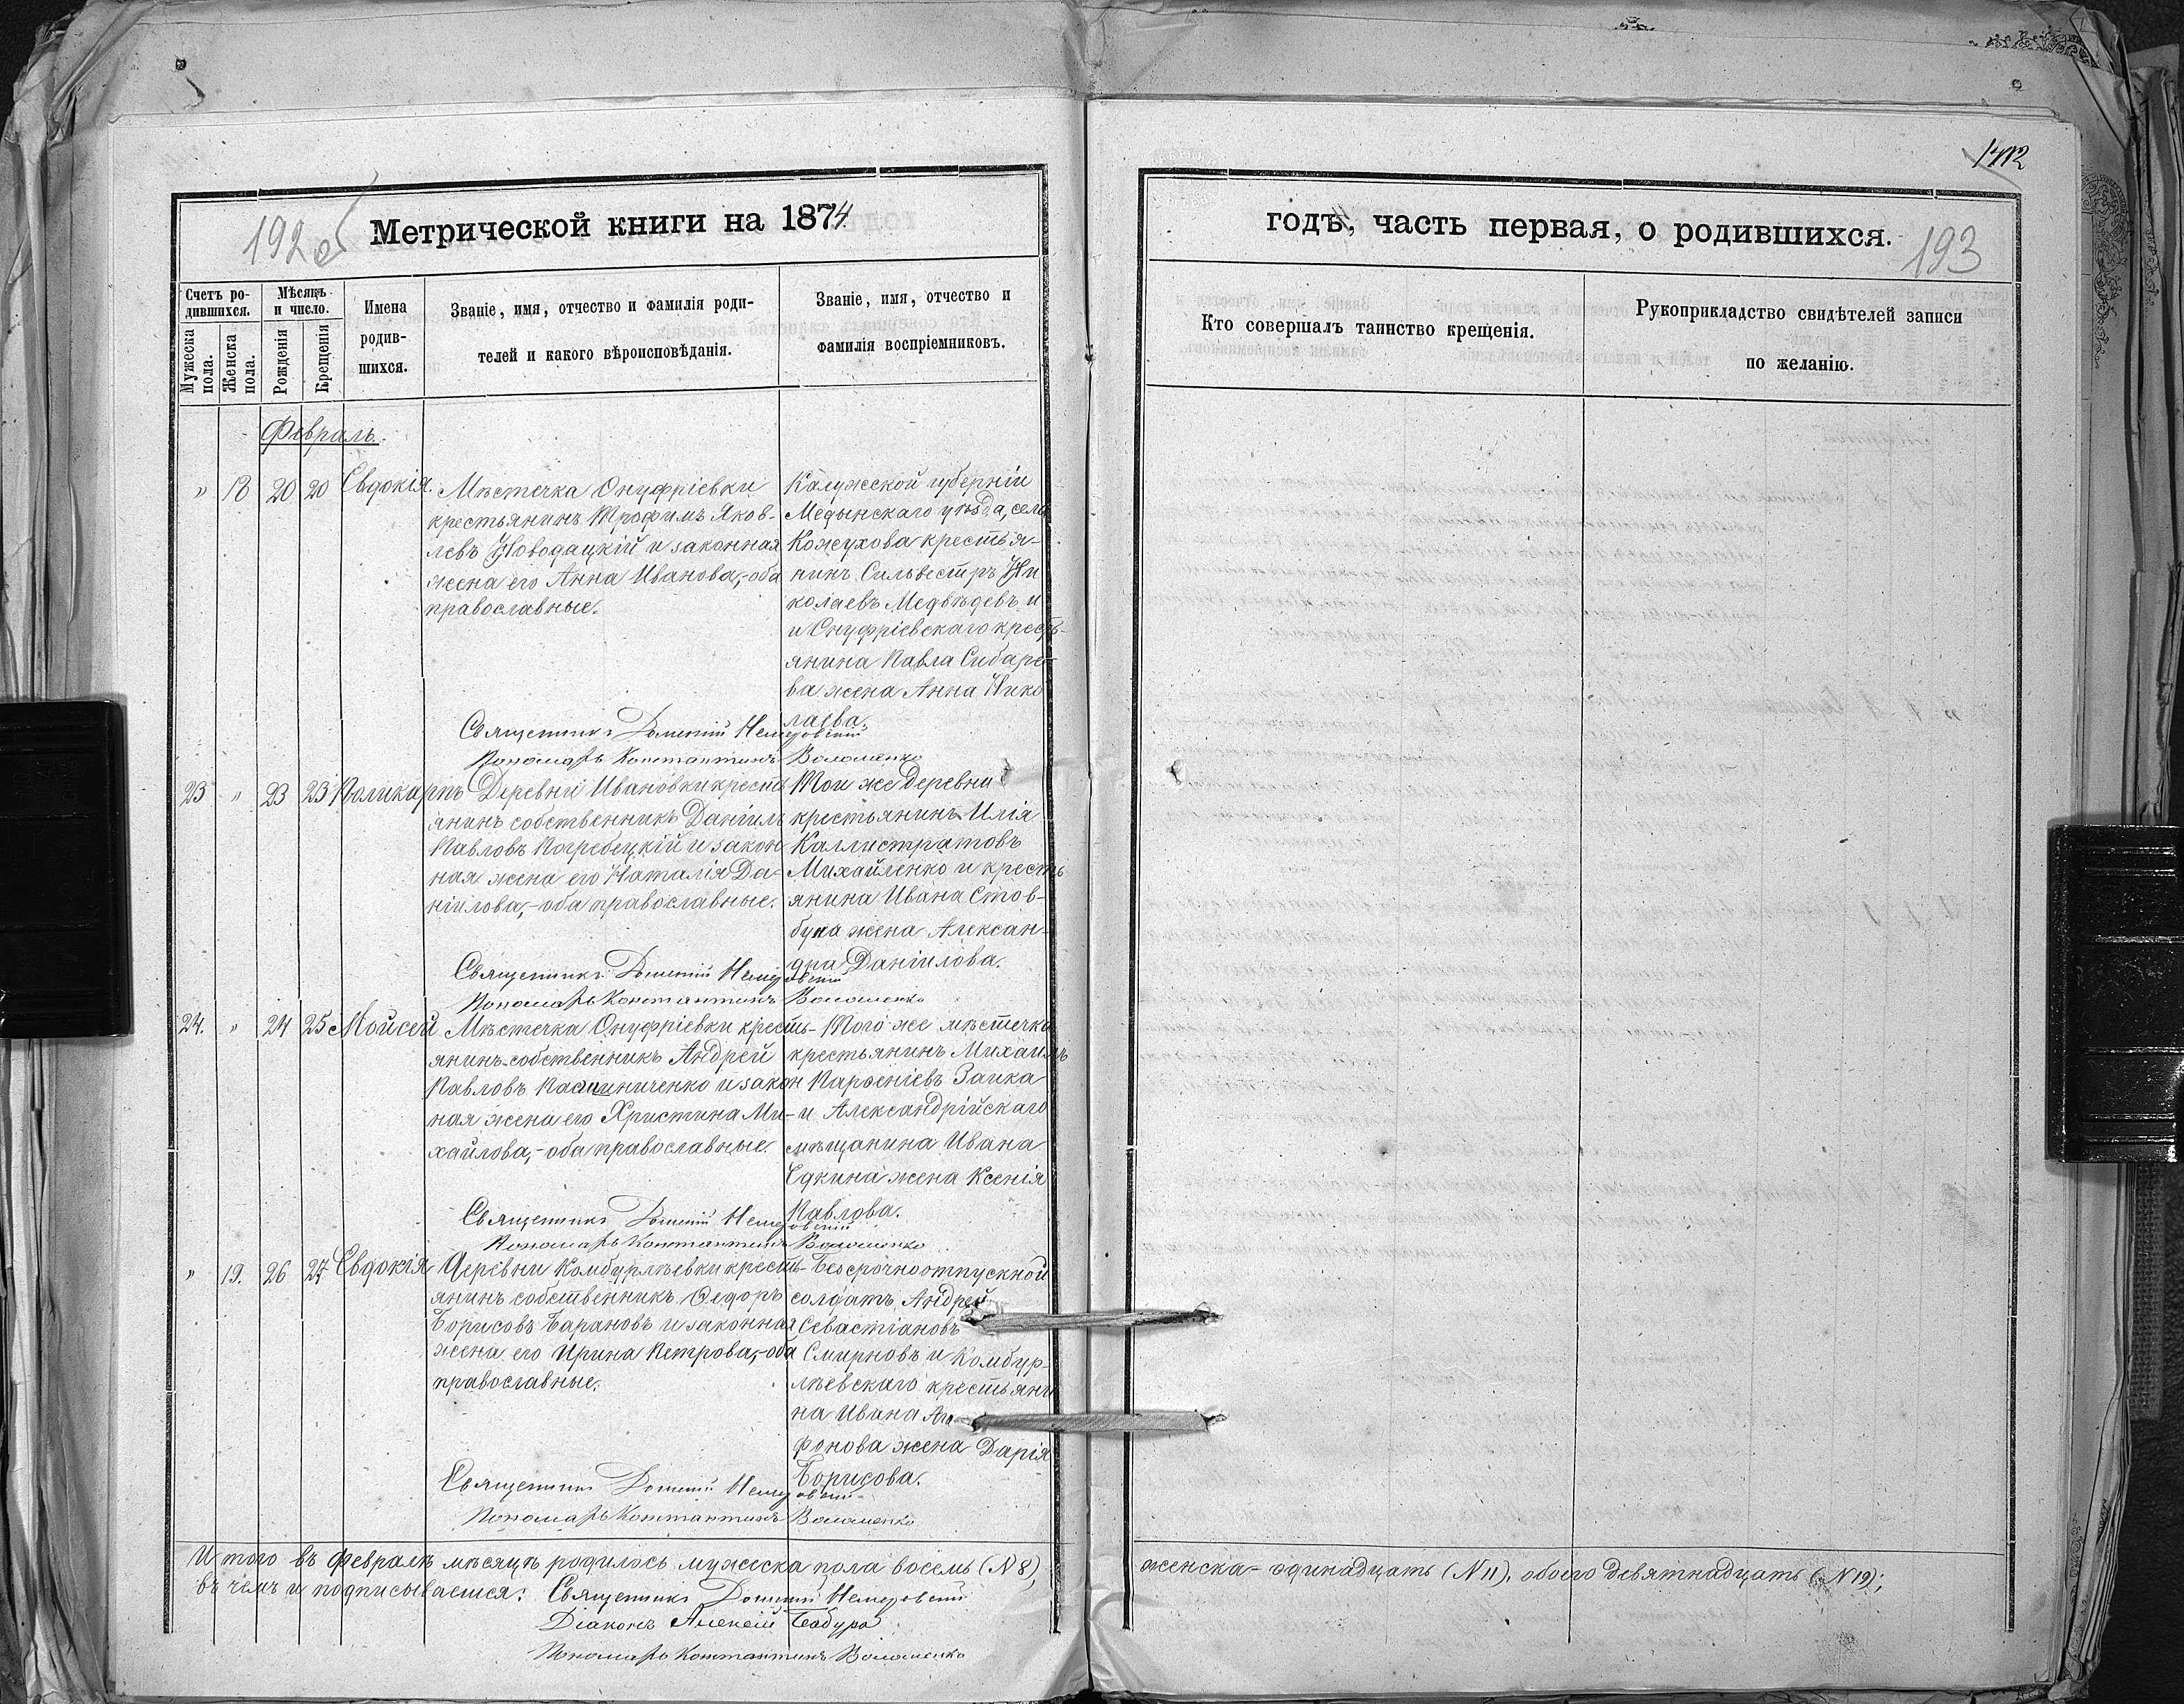 192 об
Метрической книги на 1874
Счетъ ро-
дившихся.
Мѣсяцъ
и число.
Мужеска
пола.
Женска
пола.
Рожденія
Крещенія
Имена
родив-
шихся.
Званіе, имя, отчество и фамилія роди-
телей и какого вѣроисповѣданія.
Званіе, имя, отчество и
фамилія воспріемниковъ.
Февраль.
" 18 20 20 Евдокія.
Мѣстечка Онуфріевки
крестьянинъ Трофимъ Яков-
левъ Новодацкій и законная
жена его Анна Иванова,-оба
православные.
Калужской губерніи
Медынскаго уѣзда, села
Кожухова крестья-
нинъ Сильвестръ Ни
колаевъ Медвѣдевъ и
и Онуфріевскаго кресть-
янина Павла Сибаре-
ва жена Анна Нико
лаева.
Священникъ Дометій Немеровскій
Пономарь Константинъ Волошенко
23 " 23 23 Поликарпъ
Деревни Ивановки кресть
янинъ собственникъ Даніилъ
Павловъ Погребецкій и закон
ная жена его Наталія Да-
ніилова,-оба православные.
Той же деревни
крестьянинъ Илія
Каллистратовъ
Михайленко и кресть
янина Ивана Стов-
буна жена Алексан-
дра Даніилова.
Священникъ Дометій Немеровскій
Пономарь Константинъ Волошенко
24. " 24 25 Мойсей
Мѣстечка Онуфріевки кресть-
янинъ-собственникъ Андрей
Павловъ Пасиниченко и закон
ная жена его Христина Ми-
хайлова,-оба православные.
Того же мѣстечка
крестьянинъ Михаилъ
Парѳеніевъ Заика
и Александрійскаго
мѣщанина Ивана
Едкина жена Ксенія
Павлова.
Священникъ Дометій Немеровскій
Пономарь Константинъ Волошенко
" 19. 26 27 Евдокія
Деревни Камбурлѣевки кресть-
янинъ собственникъ Ѳедоръ
Борисовъ Барановъ и законная
жена его Ирина Петрова,-оба
православные.
Безсрочноотпускной
солдатъ Андрей
Севастіановъ
Смирновъ и Комбур-
лѣевскаго крестьяни
на Ивана Ага
фонова жена Дарія
Борисова.
Священникъ Дометій Немеровскій
Пономарь Константинъ Волошенко
Итого въ февралѣ мѣсяцѣ родилось мужеска пола восемь (N 8),
въ чемъ и подписываемся: Священникъ Дометій Немеровскій
Діаконъ Алексій Бабура
Пономарь Константинъ Волошенко
годъ, часть первая, о родившихся.
193
Кто совершалъ таинство крещенія.
Рукоприкладство свидѣтелей записи
по желанію.
женска - одинадцать (N 11), обоего девятнадцать (N 19);